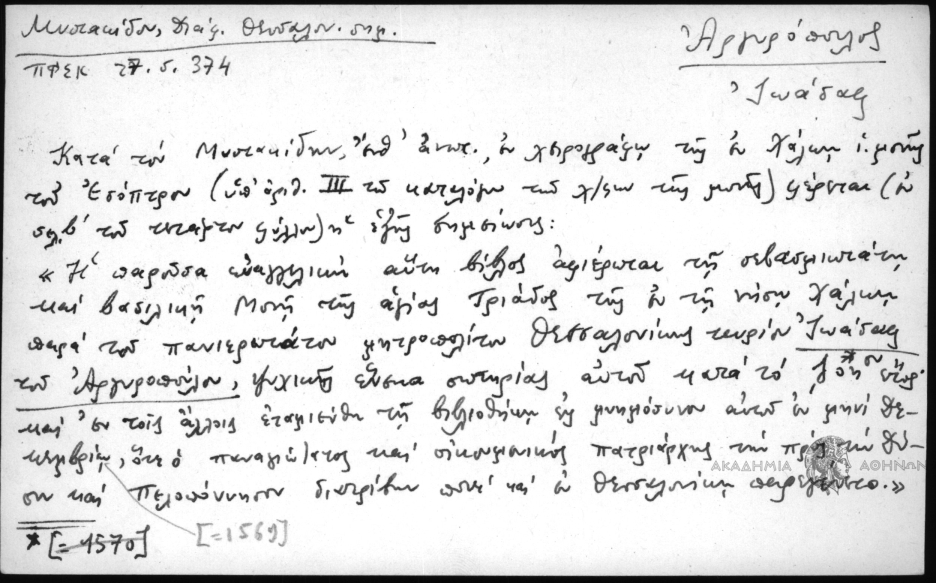 Μυστακίδου, Διάφ. Θεσσαλον. σημ.
ΠΦΣΚ 27. σ. 374
Ἀργυρόπουλος
Ἰωάσαφ
Κατά τόν Μυστακίδην, ἔνθ' ἀνωτ., ἐν χειρογράφῳ τῆς ἐν Χάλκῃ ἱ. μονῆς
τοῦ Ἐσόπτρου (ὑπ' ἀριθ. III τοῦ καταλόγου τῶν χ/φων τῆς μονῆς) φέρεται (ἐν
σελ. β' τοῦ τετάρτου φύλλου) ἡ ἑξῆς σημείωσις:
« Ἡ παροῦσα εὐαγγελική αὕτη βίβλος ἀφιέρωται τῇ σεβασμιωτάτῃ
καί βασιλικῇ Μονῇ τῆς ἁγίας Τριάδος τῆς ἐν τῇ νήσῳ Χάλκῃ
παρά τοῦ πανιερωτάτου μητροπολίτου Θεσσαλονίκης κυρίου Ἰωάσαφ
τοῦ Ἀργυροπούλου, ψυχικῆς ἕνεκα σωτηρίας αὐτοῦ κατά τό ͵ζοη* ον ἔτος·
καί ἐν τοῖς ἄλλοις ἐταμιεύθη τῇ βιβλιοθήκῃ εἰς μνημόσυνον αὐτοῦ ἐν μηνί δε-
κεμβρίῳ, ὅτε ὁ παναγιώ/ατος καί οἰκουμενικός πατριάρχης τήν πρός τήν δύ-
σιν καί Πελοπόννησον διατρίβων ποτέ καί ἐν Θεσσαλονίκῃ παρεγένετο.»
* [=1570] [=1569]
ΑΚΑΔΗΜΙΑ ΑΘΗΝΩΝ